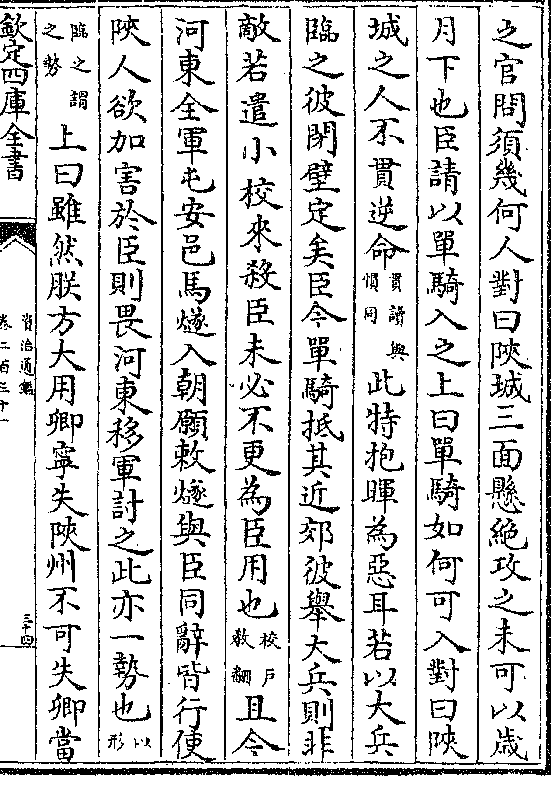 之官問須幾何人對曰陜城三面懸絶攻之未可以歲
月下也臣請以單騎入之上曰單騎如何可入對曰陜
城之人不貫逆命貫讀與慣同此特抱暉為惡耳若以大兵
臨之彼閉壁定矣臣今單騎抵其近郊彼舉大兵則非
敵若遣小校來殺臣未必不更為臣用也校戶教翻且今
河東全軍屯安邑馬燧入朝願敕燧與臣同辭皆行使
陜人欲加害於臣則畏河東移軍討之此亦一勢也以形
臨之謂之勢上曰雖然朕方大用卿寧失陜州不可失卿當
欽定四庫全書
資治通鑑
卷二百三十一
三十四